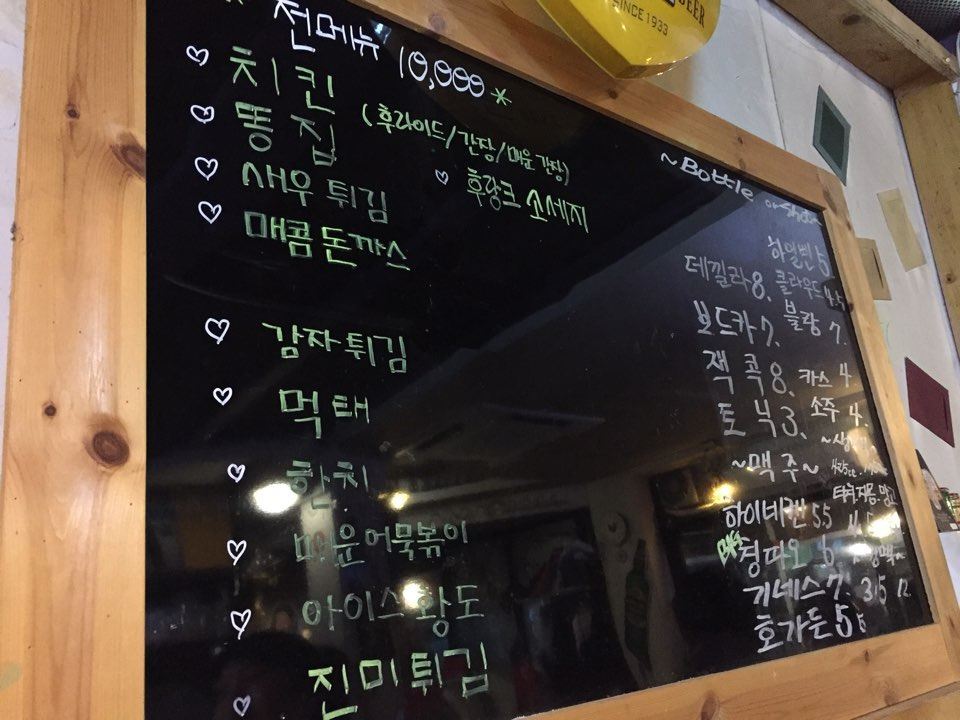 BEER
SINCE 1933
전메뉴 10,000 *
♡ 치킨
(후라이드/간장/매운간장)
♡ 똥집
♡ 후랑크 소세지
♡ 새우튀김
♡ 매콤돈까스
♡ 감자튀김
♡ 먹태
♡ 한치
♡ 매운어묵볶이
♡ 아이스황도
♡ 진미튀김
~Bottle or Shot~
데낄라 8. 클라우드 4.5
보드카 7. 블랑 7.
잭콕 8. 카스 4
토닉 3. 소주 4.
~맥주~
하이네켄 5.5
칭따오 6
기네스 7.
호가든 5.5